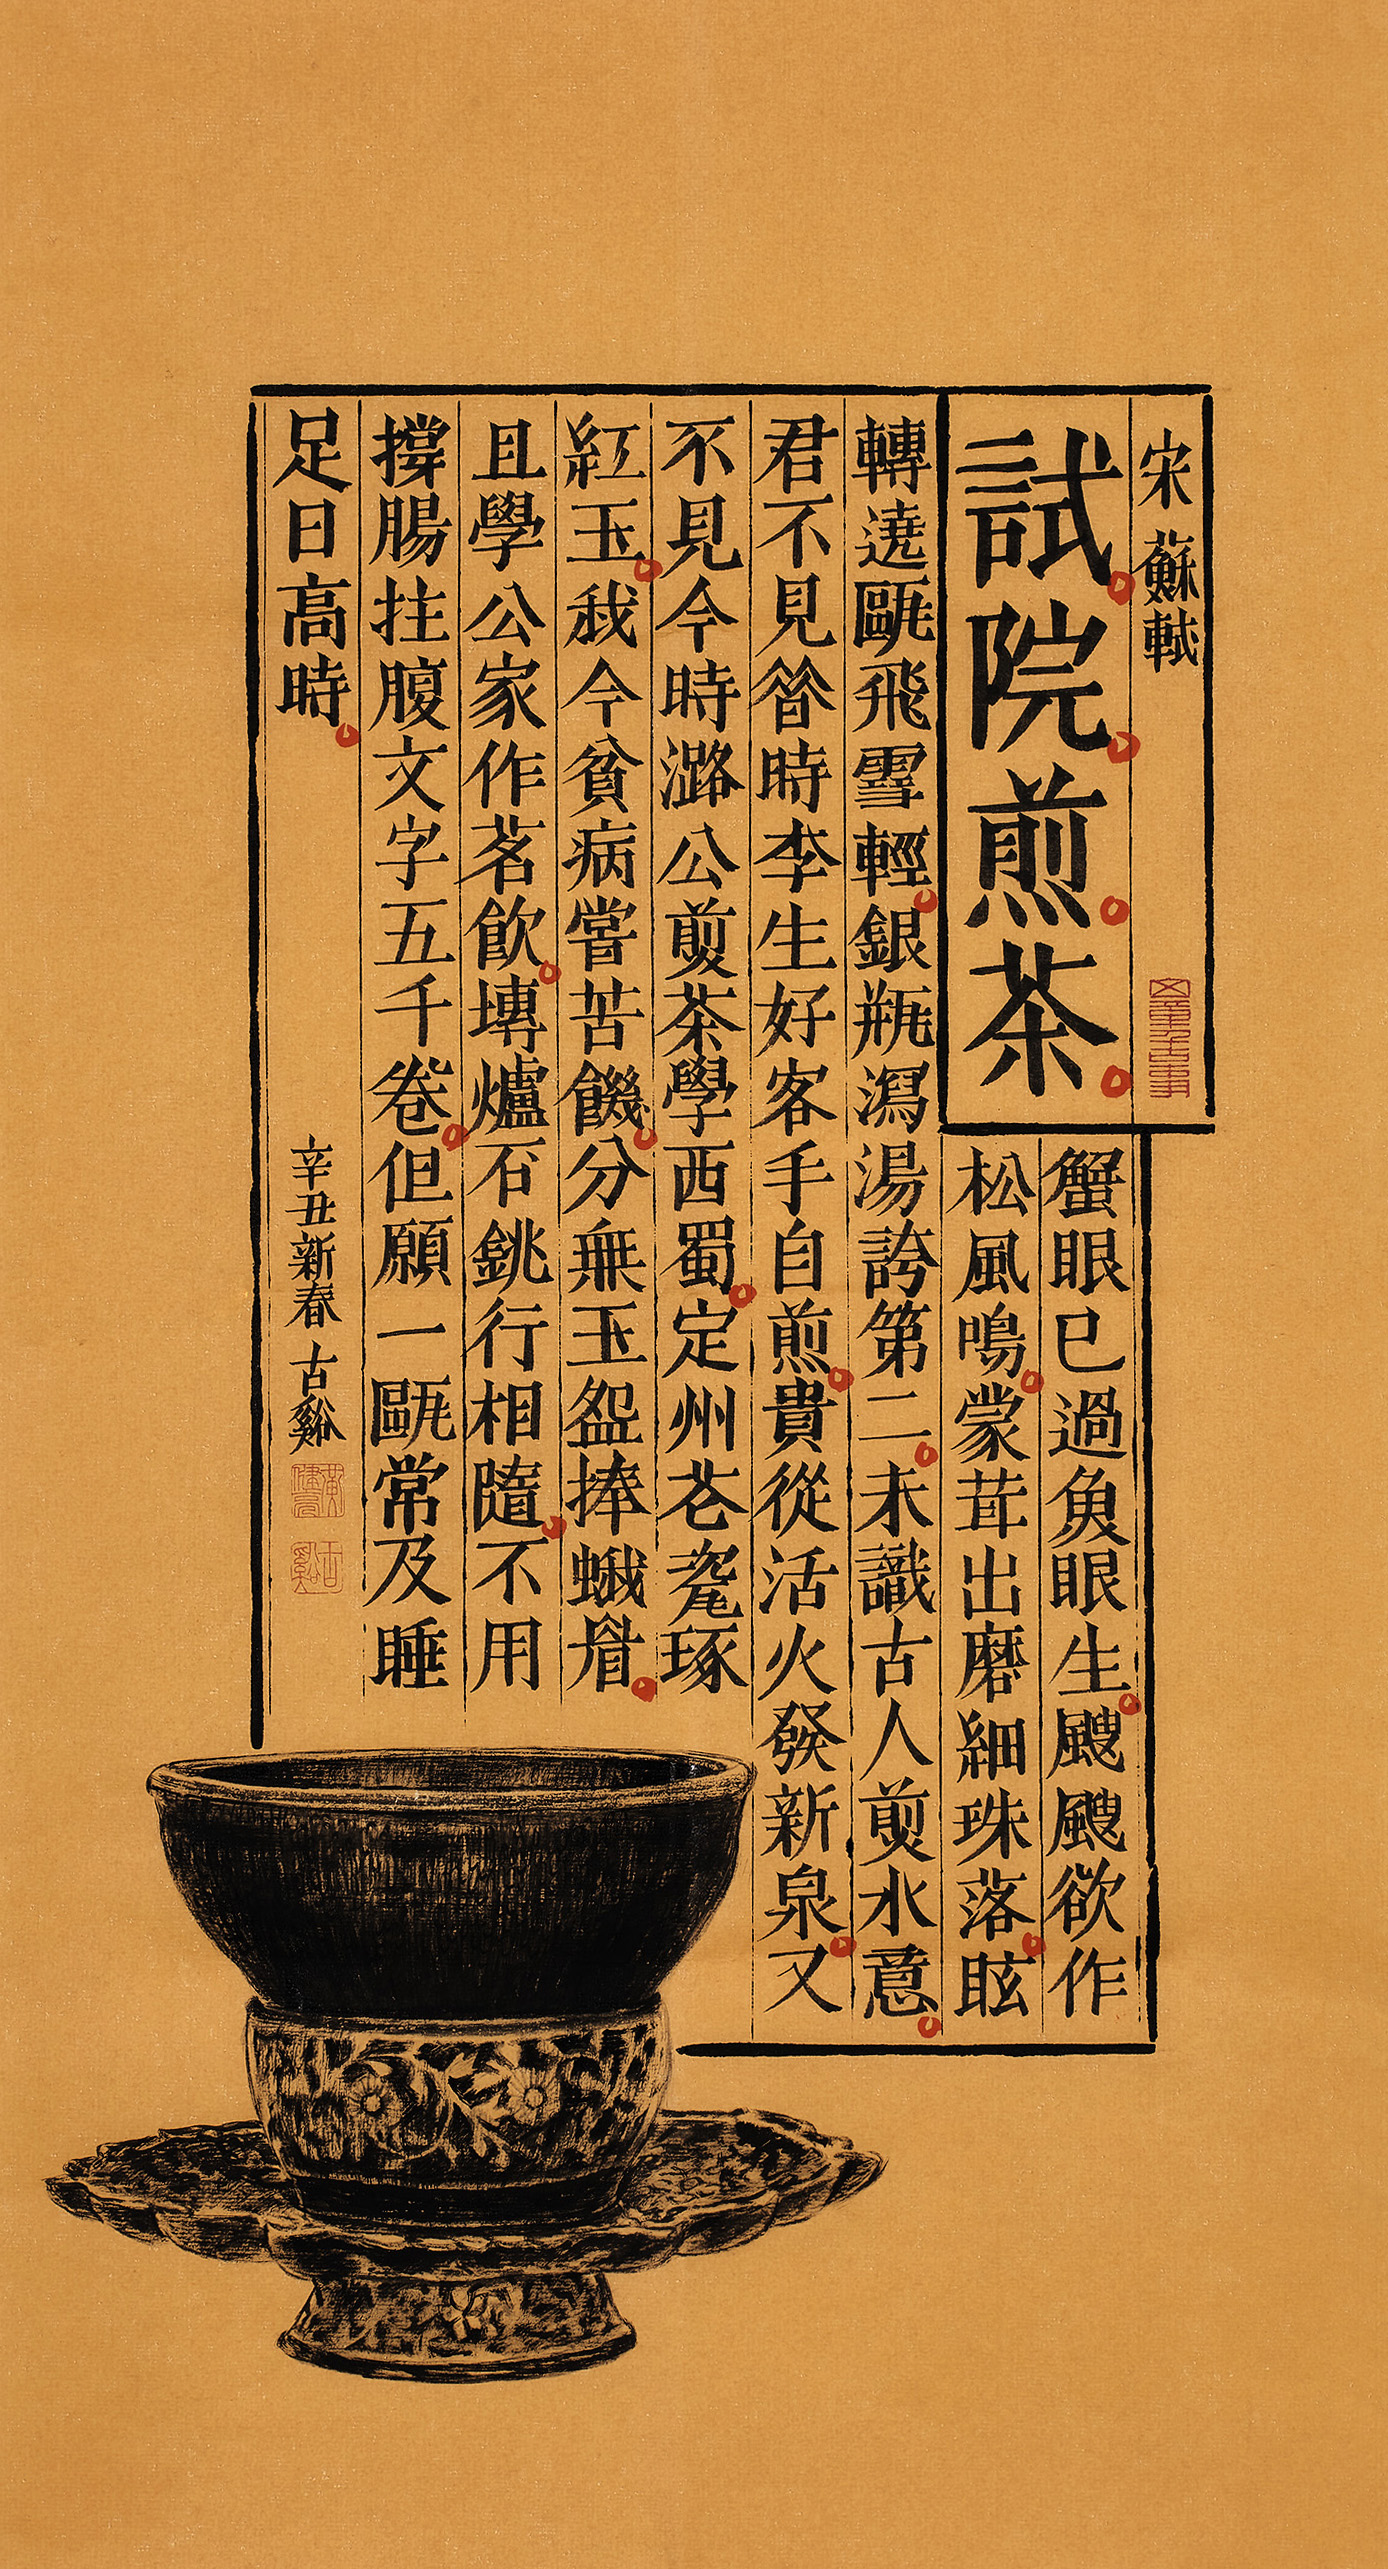 宋 蘇軾
試院煎茶
蟹眼已過魚眼生。颼颼欲作
松風鳴。蒙茸出磨細珠落。眩
轉遶甌飛雪輕。銀瓶瀉湯誇第二。未識古人煎水意。
君不見昔時李生好客手自煎。貴從活火發新泉。又
不見今時潞公煎茶學西蜀。定州花瓷琢
紅玉。我今貧病嘗苦饑。分無玉盌捧蛾眉。
且學公家作茗飲。塼爐石銚行相隨。不用
撐腸拄腹文字五千卷。但願一甌常及睡
足日高時。
辛丑新春 古谿